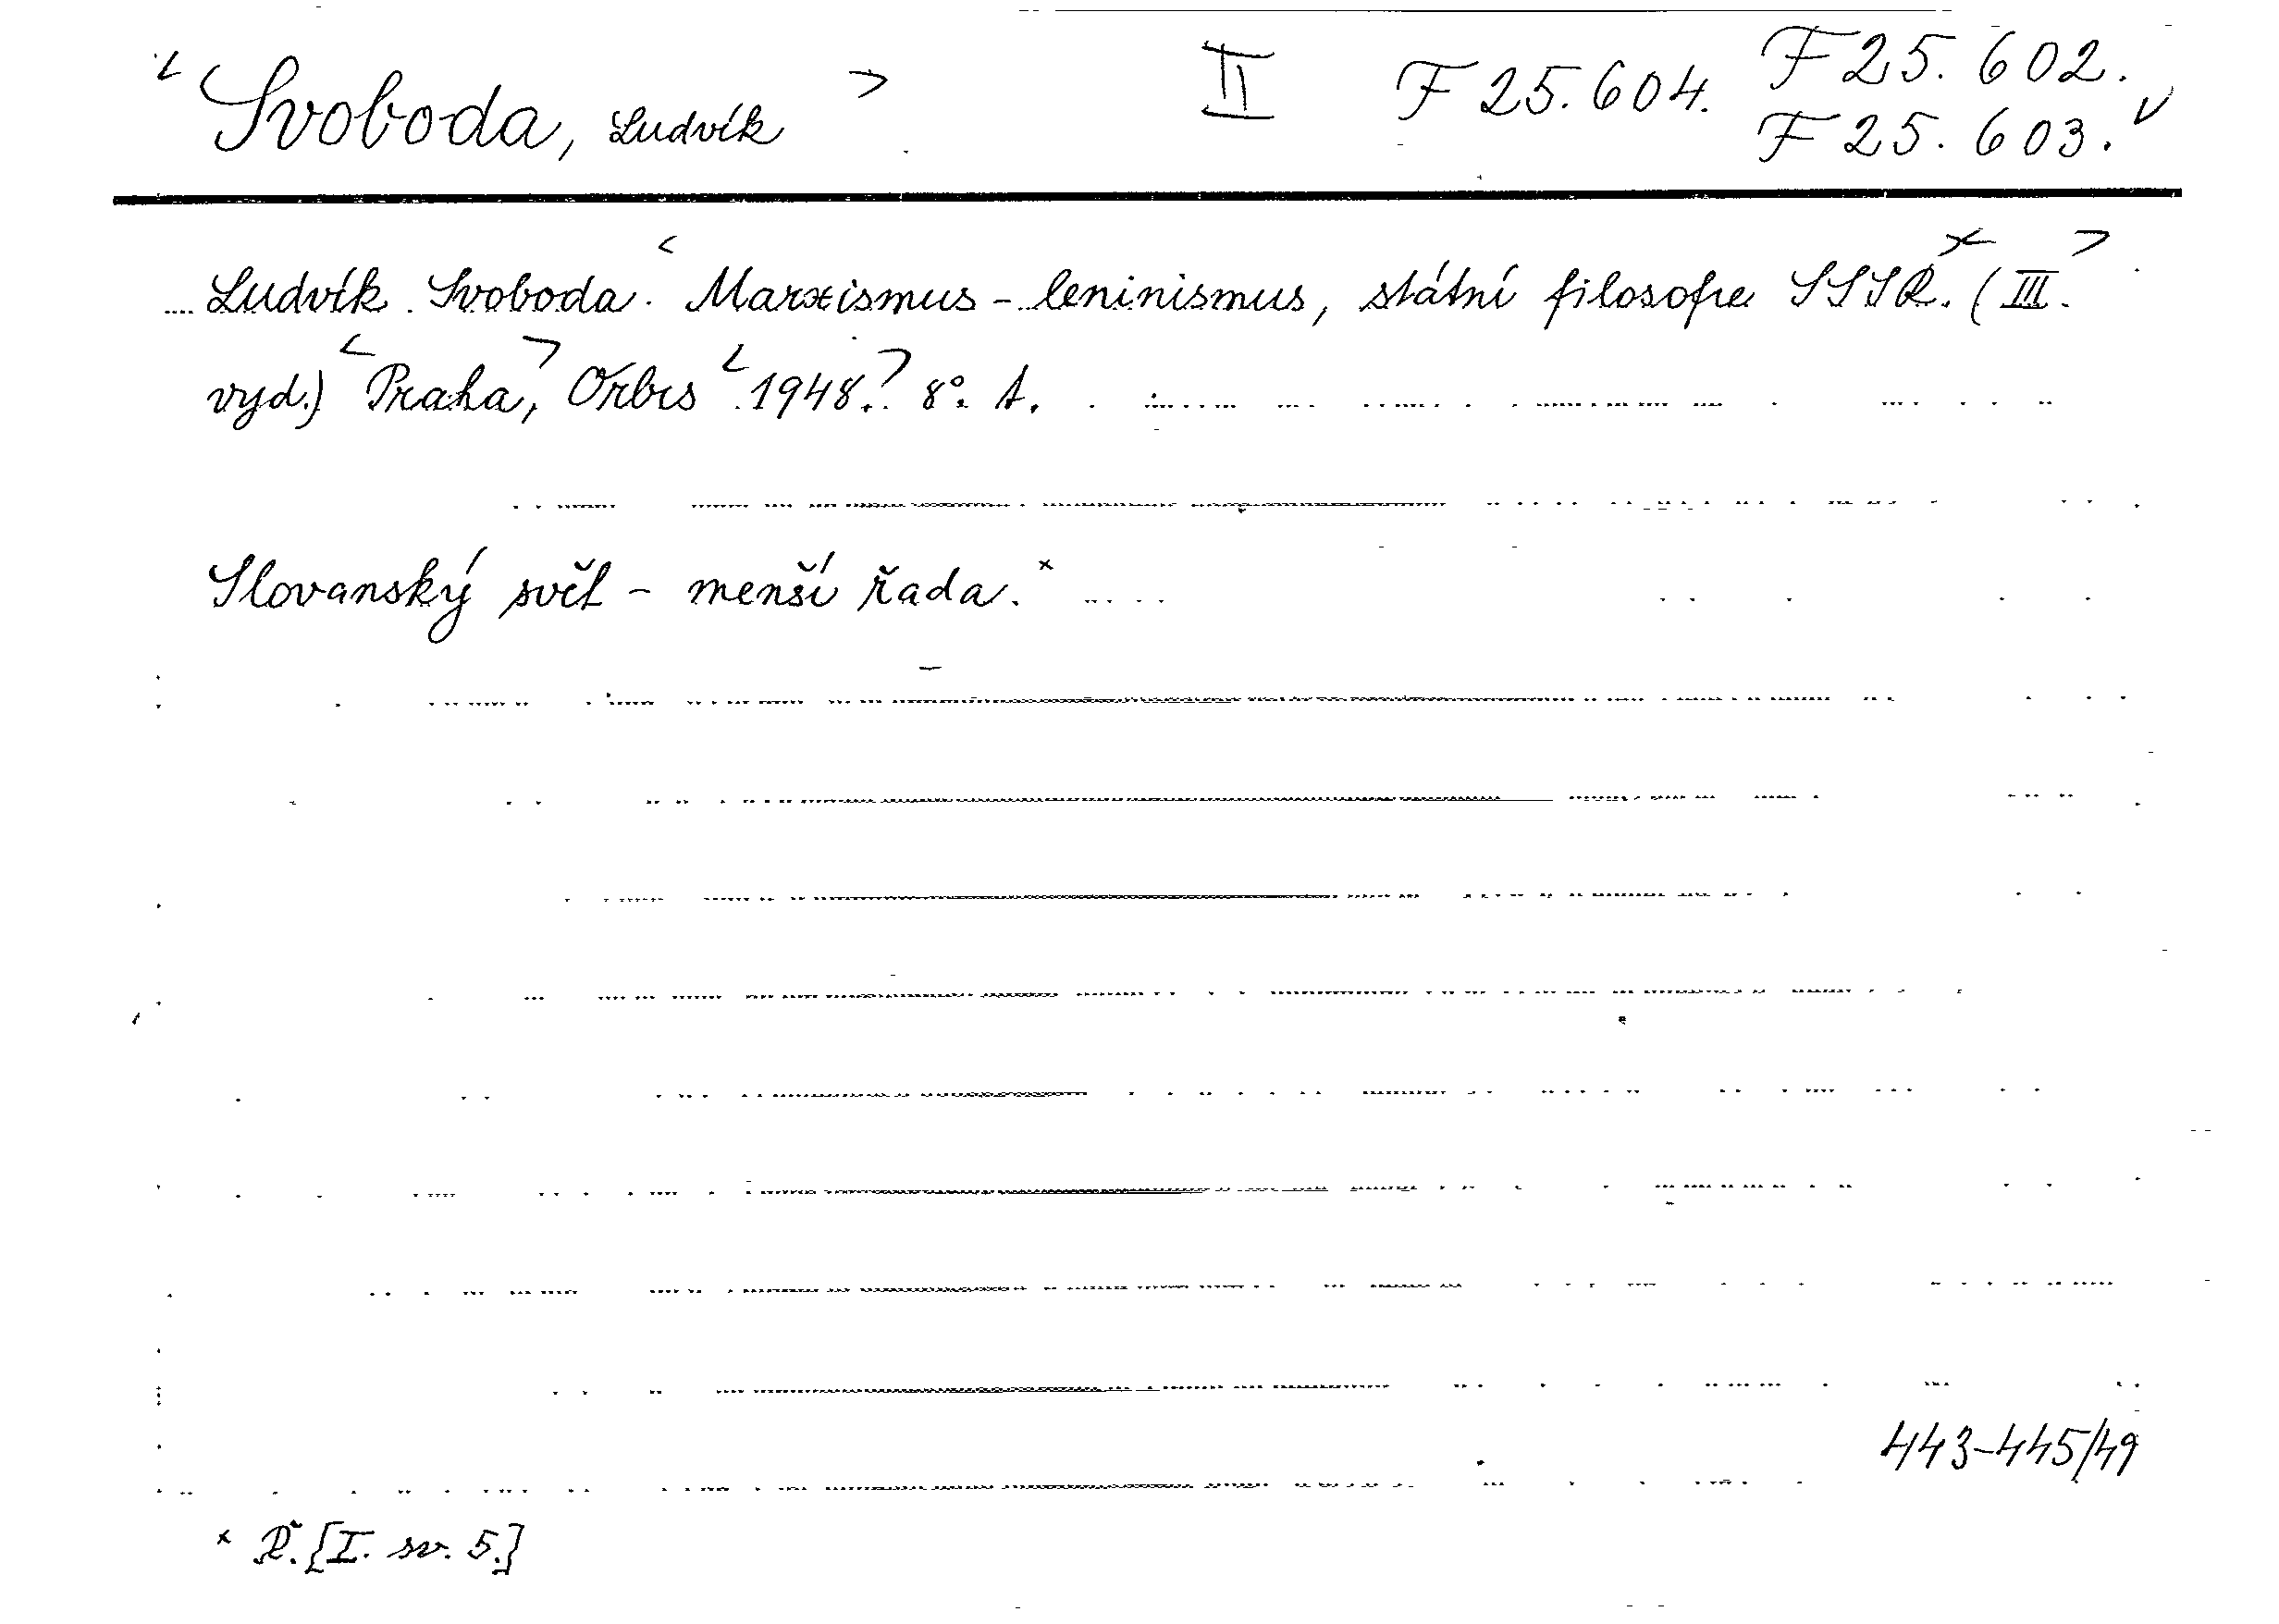 <Svoboda, Ludvík> II F 25.604. F 25.602.
F 25.603.
Ludvík Svoboda. <Marxismus-leninismus, státní filosofie SSSR.× (III.>
vyd.) <Praha,> Orbis <1948.> 8°. A.
Slovanský svět - menší řada.×
443-445/49
× Ř. [I. sv. 5.]